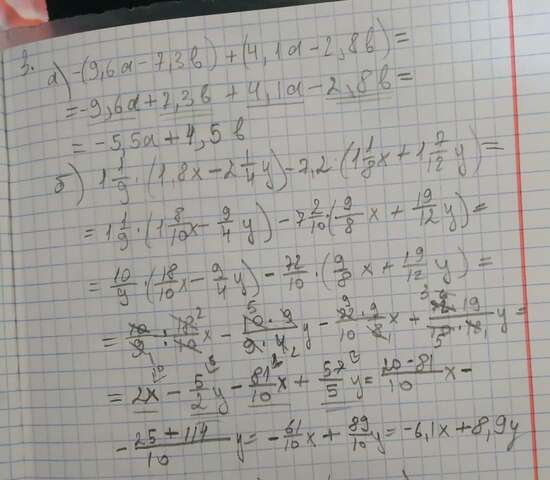 3.
а) -(9,6a-7,3в)+(4,1a-2,8в)=
=-9,6a+7,3в+4,1a-2,8в=
=-5,5a+4,5в
б) 1 1/9·(1,8x-2 1/4y)-7,2·(1 1/8x+1 7/12y)=
=1 1/9·(1 8/10x-9/4y)-7 2/10·(9/8x+19/12y)=
=10/9·(18/10x-9/4y)-72/10·(9/8x+19/12y)=
=2x-5/2y-81/10x+57/5y=20-81/10x-
-25+114/10y=-61/10x+89/10y=-6,1x+8,9y